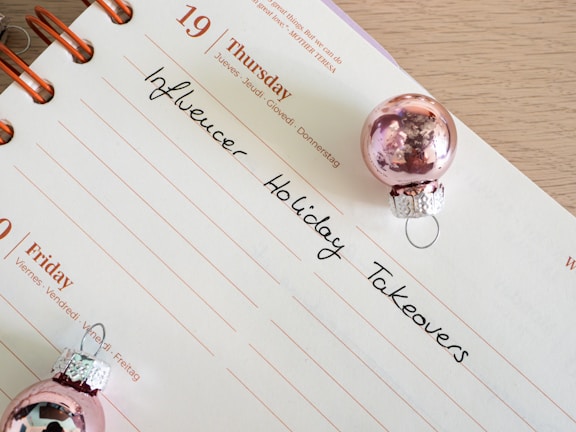 great things. But we can do
great love." - MOTHER TERESA
19
Thursday
Jueves · Jeudi · Giovedì · Donnerstag
Influencer Holiday Takeovers
Friday
Viernes · Vendredi · Venerdì · Freitag
W